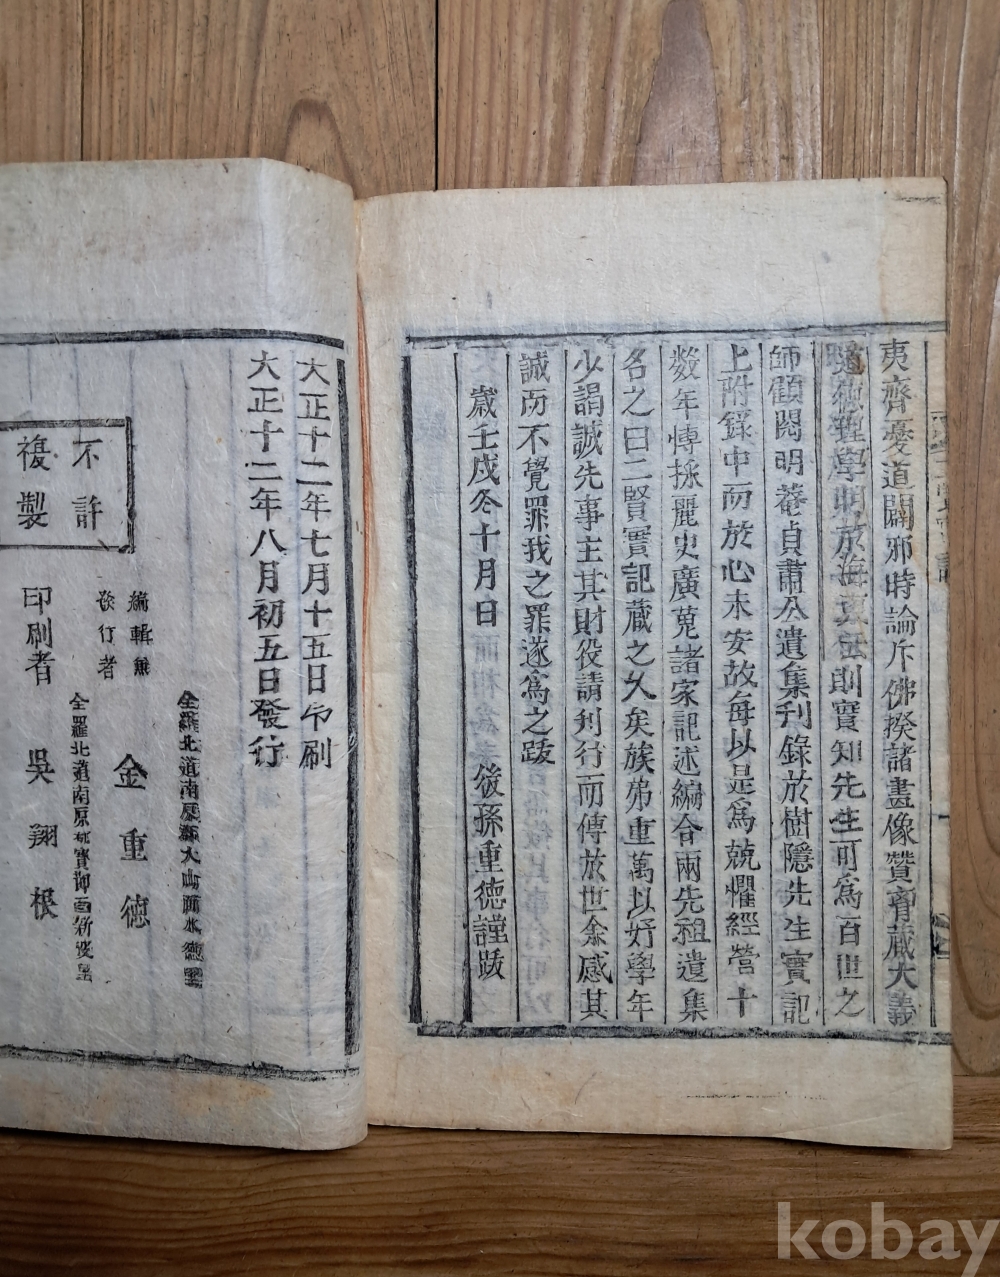 夷齊憂道闢邪時論斥佛揆諸畫像贊脊蔵大義
道德理學明於海東世則實知先生可爲百世之
師顧閱明菴貞肅公遺集刊錄於樹隱先生實記
上附錄中而於心未安故每以是爲兢懼經營十
数年博採麗史廣蒐諸家記述編合兩先祖遺集
名之曰二賢實記蔵之久矣族弟重萬以好學年
少謁誠先事主其財役請刋行而傳於世余感其
誠而不覺罪我之罪遂爲之跋
歲壬戌冬十月日 後孫重德謹跋
大正十二年七月十五日印刷
大正十二年八月初五日發行
全羅北道南原郡大山面水德里
編輯兼
發行者 金重德
全羅北道南原郡寶節面新波里
印刷者 吳翔根
不許
複製
kobay